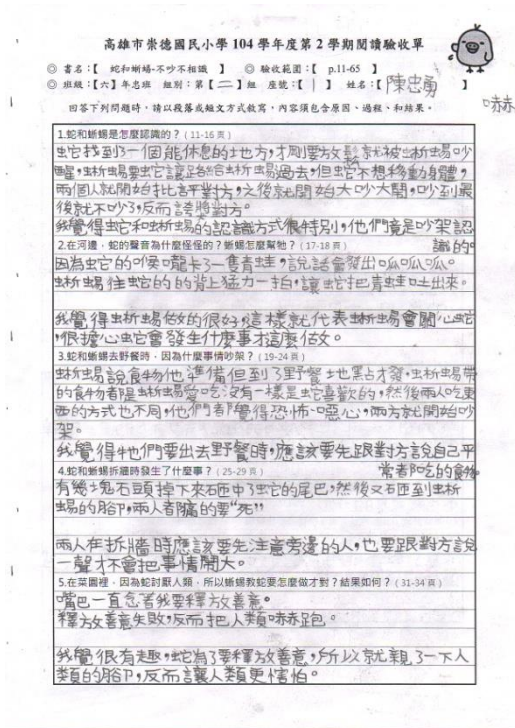 高雄市崇德國民小學 104 學年度第 2 學期閱讀驗收單
◎ 書名：【 蛇和蜥蜴-不吵不相識 】 ◎ 驗收範圍：【 p.11-65 】
◎ 班級：【六】年忠班 組別：第【二】組 座號：【 1 】 姓名：【陳忠勇】
回答下列問題時，請以段落或短文方式敘寫，內容須包含原因、過程、和結果。
嚇
1.蛇和蜥蜴是怎麼認識的？（11-16 頁）
蛇找到了一個能休息的地方，才剛要放鬆就被蜥蜴吵
醒，蜥蜴要蛇它讓路給蜥蜴過去，但蛇不想移動身體，
兩個人就開始批評對方，之後就開始大吵大鬧，吵到最
後就不吵了，反而誇獎對方。
我覺得蛇和蜥蜴的認識方式很特別，他們竟是吵架認
識的。
2.在河邊，蛇的聲音為什麼怪怪的？蜥蜴怎麼幫牠？（17-18 頁）
因為蛇的喉嚨卡了一隻青蛙，說話會發出呱呱呱。
蜥蜴往蛇的的背上猛力一拍，讓蛇把青蛙吐出來。
我覺得蜥蜴做的很好，這樣就代表蜥蜴會關心蛇
，很擔心蛇會發生什麼事才這麼做。
3.蛇和蜥蜴去野餐時，因為什麼事情吵架？（19-24 頁）
蜥蜴說食物他準備但到了野餐地點才發，蜥蜴帶
的食物都是蜥蜴愛吃，沒有一樣是蛇喜歡的，然後兩人吃東
西的方式也不同，他們都覺得恐怖、噁心，兩方就開始吵
架。
我覺得牠們要出去野餐時，應該要先跟對方說自己平
常都吃的食物
4.蛇和蜥蜴拆牆時發生了什麼事？（25-29 頁）
有幾塊石頭掉下來砸中了蛇的尾巴，然後又砸到蜥
蜴的腳，兩人都痛的要"死"
兩人在拆牆時應該要先注意旁邊的人，也要跟對方說
一聲才不會把事情鬧大。
5.在菜園裡，因為蛇討厭人類，所以蜥蜴教蛇要怎麼做才對？結果如何？（31-34 頁）
嘴巴一直念著我要釋放善意。
釋放善意失敗，反而把人類嚇跑。
我覺很有趣，蛇為了要釋放善意，所以就親了一下人
類的腳，反而讓人類更害怕。